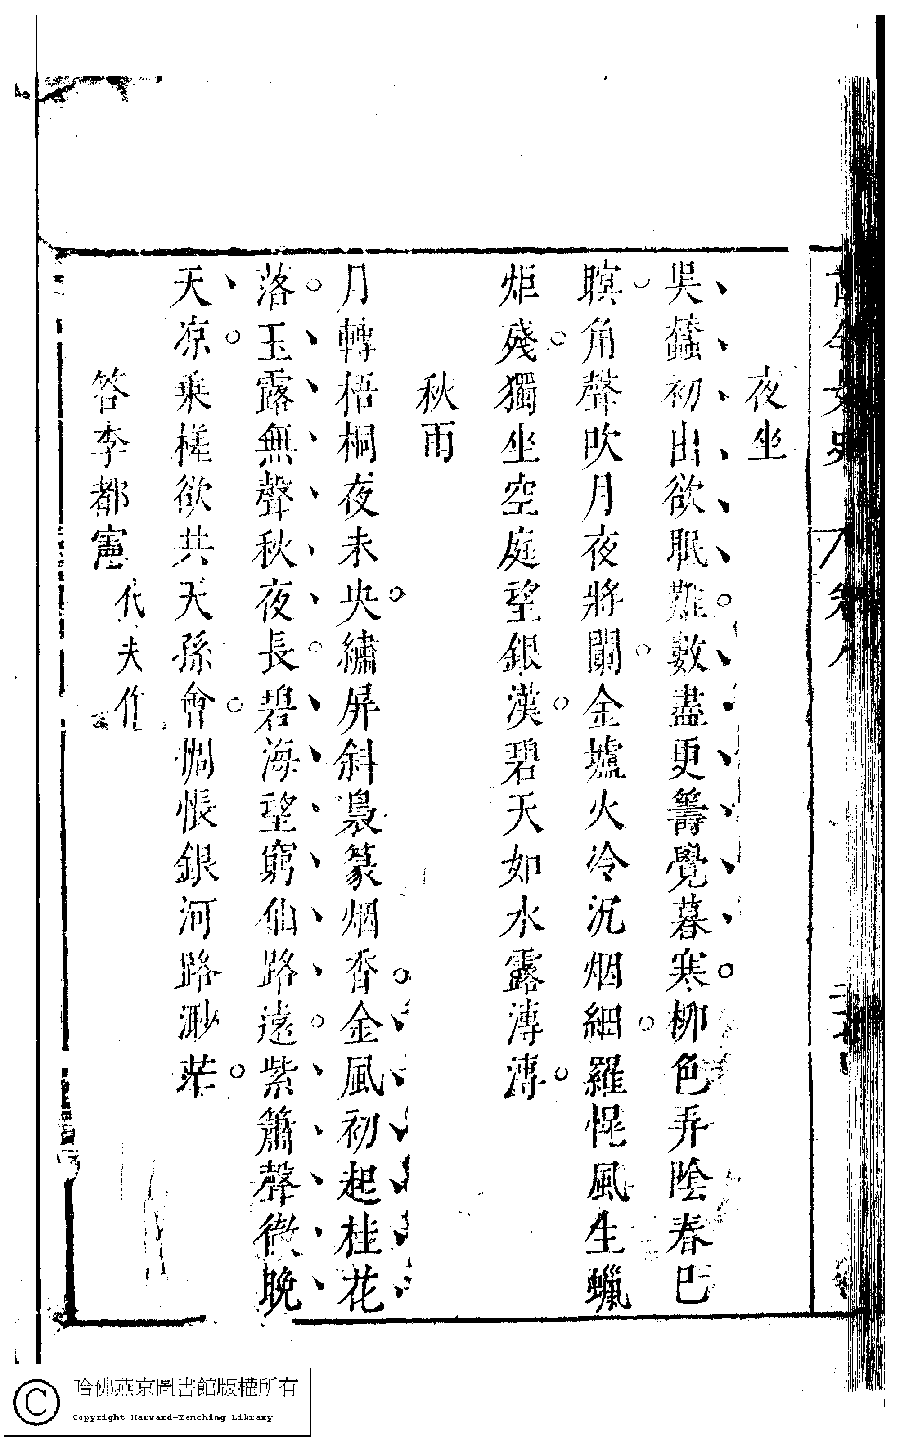 夜坐
吳蠶初出欲眠難數盡更籌覺暮寒柳色弄陰春已
暝角聲吹月夜將闌金壚火冷沉烟細羅幌風生蠟
炬殘獨坐空庭望銀漢碧天如水露漙漙
秋雨
月轉梧桐夜未央繡屏斜裊篆烟香金風初起桂花
落玉露無聲秋夜長碧海望窮仙路遠紫簫聲微晚
天凉乘槎欲共天孫會惆悵銀河路渺茫
答李都憲 代夫作
哈佛燕京圖書館版權所有
Copyright Harvard-Yenching Library